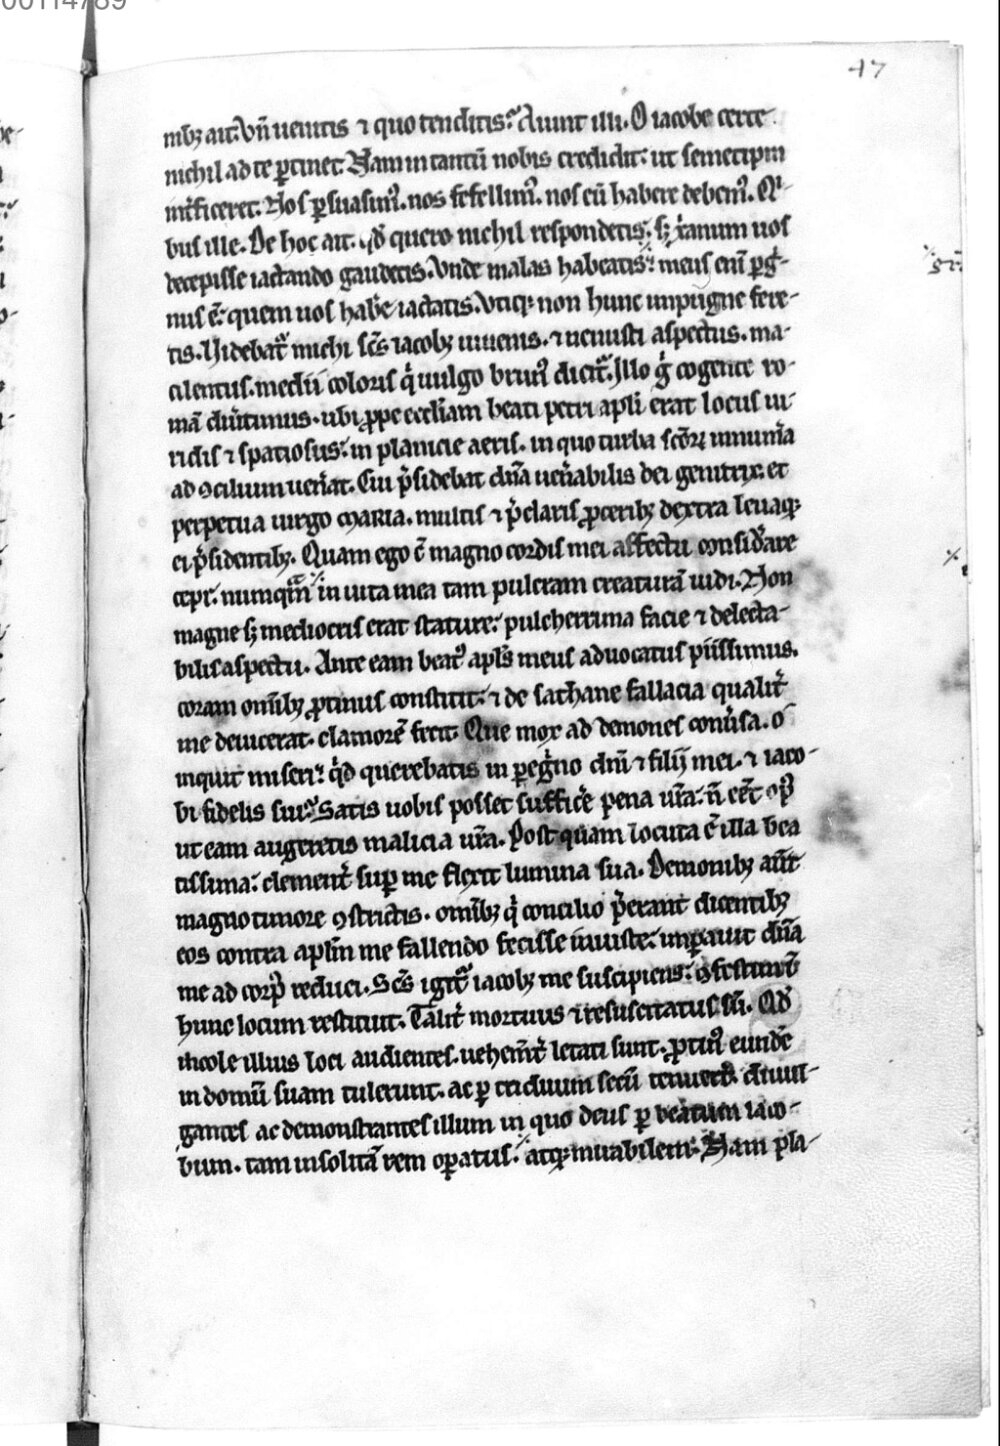 00114789
47
nibꝫ ait. Vn̄ uenitis ⁊ quo tenditis? Aiunt illi. O iacobe certe
nichil ad te ꝑtinet. Nam in tantū nobis credidit: ut semetipm̄
int̓ficeret. Nos ꝑsuasim᷒. nos fefellim᷒. nos eū habere debem᷒. Qⁱ-
bus ille. De hoc ait. qd̓ quero nichil respondetis: sꝫ xp̄ianum uos
decepisse iactando gaudetis. Vnde malas habeatis: meus eni ꝑg̓-
nus ē: quem uos habe̓ iactatis. Vtiqꝫ non hunc inpugne fere-
tis. Videbat᷑ michi sc̄s iacobꝫ iuuenis. ⁊ uenusti aspectus. ma-
cilentus. medii coloris q̓ uulgo brun᷒ dicit᷑. Illo g̓ cogente ro-
mā diu̓timus. ubi ꝓpe eccl̄iam beati petri apl̄i erat locus ui-
ridis ⁊ spatiosus: in planicie aeris. in quo turba scōꝝ innum̓a
ad ꝯcilium uen̓at. Cui p̓sidebat dn̄a uen̓abilis dei genitrix. et
perpetua uirgo MARIA. multis ⁊ p̓claris ꝓceribꝫ dextra leuaqꝫ
ei p̓sidentibꝫ. Quam ego c̄ magno cordis mei affectu consid̓are
cepi: numqm̄ in uita mea tam pulcram creaturā uidi. Non
magne sꝫ mediocris erat stature: pulcherrima facie ⁊ delecta-
bilis aspectu. Ante eam beat᷒ apl̄s meus aduocatus piissimus.
coram om̄ibꝫ ꝓtinus constitit: ⁊ de sathane fallacia qualit̓
me deuicerat. clamorē fecit. Que mox ad demones conu̓sa. o
inquit miseri: qd̓ querebatis in ꝑeg̓no dn̄i ⁊ filij mei. ⁊ iaco-
bi fidelis sui? Satis uobis posset suffice̓ pena ur̄a: n̄ eēt op᷒
ut eam augeretis malicia ur̄a. Post quam locuta ē illa bea
tissima: clement̓ sup me flexit lumina sua. Demonibꝫ aut̄
magno timore ꝯstrictis. om̄ibꝫ q̓ concilio p̓erant dicentibꝫ
eos contra apl̄m me fallendo fecisse iniuste: imꝑauit dn̄a
me ad corp᷒ reduci. Sc̄s igit᷑ iacobꝫ me suscipiens: ꝯfestim
hunc locum restituit. Talit̓ mortuus ⁊ resuscitatus sū. Qd̓
incole illius loci audientes. uehem̄t̓ letati sunt. ꝓtin᷒ eundē
in domū suam tulerunt. ac ꝑ triduum secū tenuer̄t. diuul-
gantes ac demonstrantes illum in quo deus ꝑ beatum iaco-
bum. tam insolitā rem oꝑatus: atqꝫ mirabilem. Nam pla-